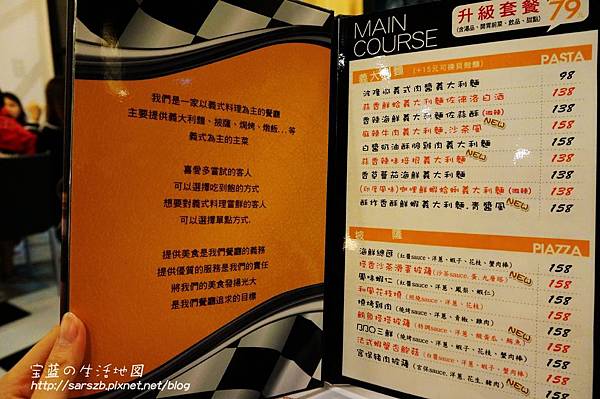 我們是一家以義式料理為主的餐廳
主要提供義大利麵、披薩、焗烤、燉飯...等
義式為主的主菜
喜愛多嘗試的客人
可以選擇吃到飽的方式
想要對義式料理嘗鮮的客人
可以選擇單點方式.
提供美食是我們餐廳的義務
提供優質的服務是我們的責任
將我們的美食發揚光大
是我們餐廳追求的目標
MAIN
COURSE
升級套餐 79
(含湯品、開胃前菜、飲品、甜點)
義大利麵 (+15元可換貝殼麵) PASTA
波隆納義式肉醬義大利麵 98
蒜香鮮蛤義大利麵佐德洛白酒 138
香辣海鮮義大利麵佐蒜酥(微辣) 138
麻辣牛肉義大利麵.沙茶風 NEW 158
白醬奶油酥嫩雞肉義大利麵 138
蒜香辣味培根義大利麵 NEW 138
香草蕃茄海鮮義大利麵 158
(印度風味)咖哩鮮蝦蛤蜊義大利麵(微辣) 138
酥炸香酥鮮蝦義大利麵.青醬風 NEW 158
披 薩 PIAZZA
海鮮總匯 (紅醬sauce、洋蔥、蝦子、花枝、蟹肉棒) 158
怪香沙茶滑蛋披薩 (沙茶sauce.蛋.九層塔) NEW 158
風味蝦仁 (紅醬sauce、洋蔥、鳳梨、蝦仁) 158
和風花枝燒 (照燒sauce、洋蔥、花枝) 158
燒烤雞肉 (燒烤sauce、洋蔥、青椒、雞肉) 158
鮪魚怪怪披薩 (特調sauce、洋蔥、酸黃瓜、鮪魚) NEW 158
BBQ三鮮 (燒烤sauce、洋蔥、蝦子、花枝、蟹肉棒) 158
法式蝦蟹杏鮑菇 (白醬sauce、洋蔥、蝦子、蟹肉棒) 158
宮保豬肉披薩 (宮保sauce.洋蔥.花生.豬肉) NEW 158
宝蓝の生活地図
http://sarszb.pixnet.net/blog